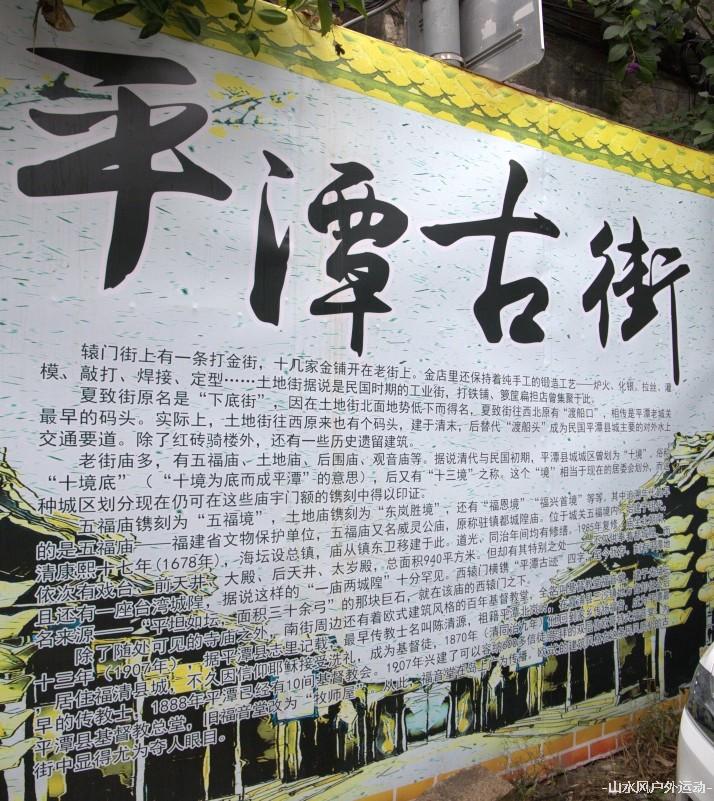 平潭古街
辕门街上有一条打金街，十几家金铺开在老街上。金店里还保持着纯手工的锻造工艺——炉火、化银、拉丝、灌
模、敲打、焊接、定型……土地街据说是民国时期的工业街，打铁铺、箩筐扁担店曾集聚于此。
夏致街原名是“下底街”，因在土地街北面地势低下而得名，夏致街往西北原有“渡船口”，相传是平潭老城关
最早的码头。实际上，土地街往西原来也有个码头，建于清末，后替代“渡船头”成为民国平潭县城主要的对外水上
交通要道。除了红砖骑楼外，还有一些历史遗留建筑。
老街庙多，有五福庙、土地庙、后围庙、观音庙等。据说清代与民国初期，平潭县城城区曾划为“十境，俗称
“十境底”（“十境为底而成平潭”的意思），后又有“十三境”之称。这个“境”相当于现在的居委会划分，而这
种城区划分现在仍可在这些庙宇门额的镌刻中得以印证。
五福庙镌刻为“五福境”，土地庙镌刻为“东岚胜境”，还有“福恩境”“福兴首境”等等，其中
的是五福庙——福建省文物保护单位，五福庙又名威灵公庙，原称驻镇都城隍庙，位于城关五福境内
清康熙十七年(1678年)，海坛设总镇，庙从镇东卫移建于此。道光、同治年间均有修缮。1985年复修
依次有戏台、前天井、大殿、后天井、太岁殿，总面积940平方米。但却有其特别之处
且还有一座台湾城隍，据说这样的“一庙两城隍”十分罕见。西辕门横镌“平潭古迹”四字，
名来源——“平坦如坛，面积三十余弓”的那块巨石，就在该庙的西辕门之下。
除了随处可见的寺庙之外，南街周边还有着欧式建筑风格的百年基督教堂，
十三年（1907年），据平潭县志里记载：最早传教士名叫陈清源，祖籍平潭
，居住福清县城，不久因信仰耶稣接受洗礼，成为基督徒，1870年（清同治
早的传教士。1888年平潭已经有10间基督教会。1907年兴建了可以容
平潭县基督教总堂，旧福音堂改为“牧师屋”，从此，福音堂在岛上
街中显得尤为夺人眼目。
-山水风户外运动-